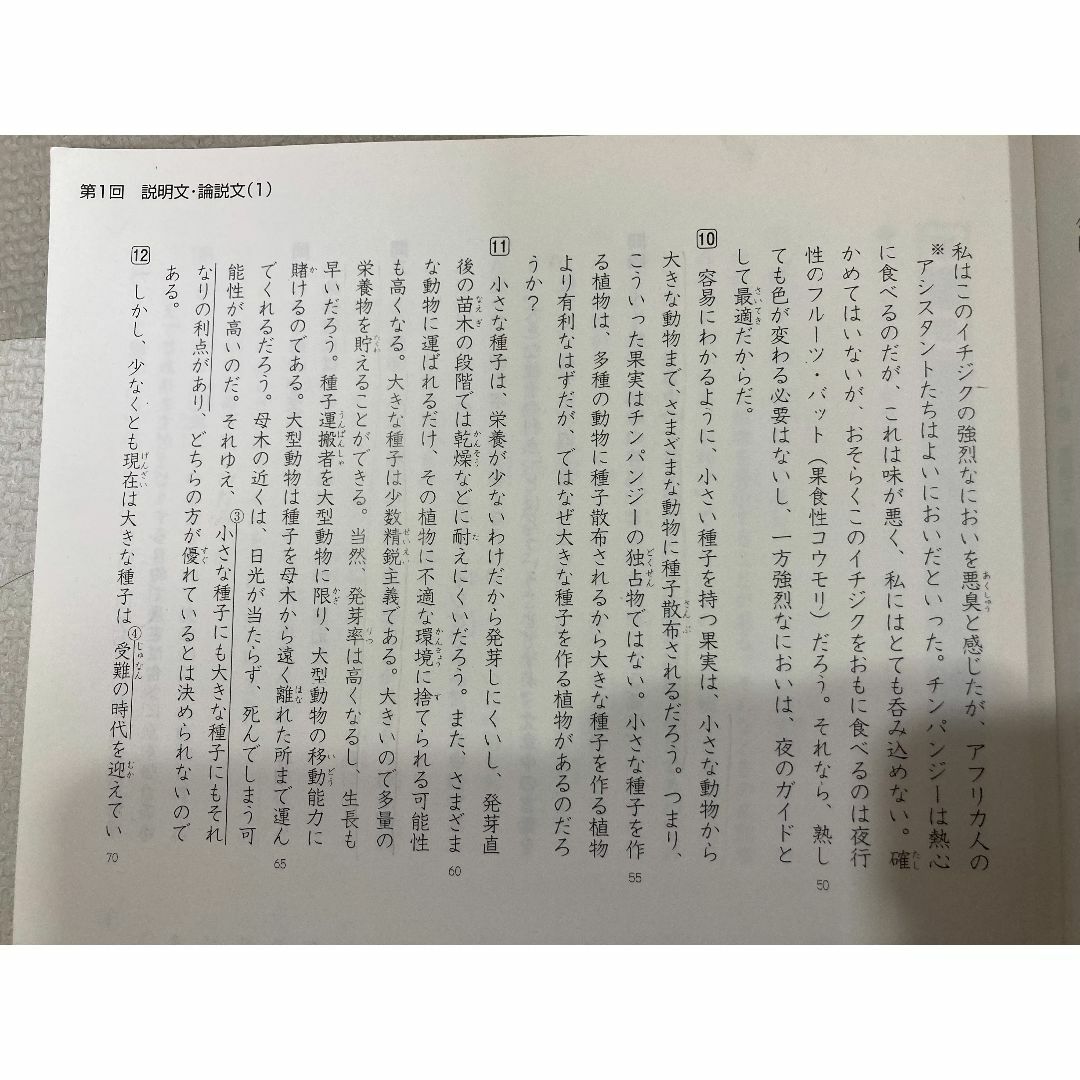 第1回　説明文・論説文(1)
私はこのイチジクの強烈なにおいを悪臭と感じたが、アフリカ人の
※アシスタントたちはよいにおいだといった。チンパンジーは熱心
に食べるのだが、これは味が悪く、私にはとても呑み込めない。確
かめてはいないが、おそらくこのイチジクをおもに食べるのは夜行
性のフルーツ・バット（果食性コウモリ）だろう。それなら、熟し
ても色が変わる必要はないし、一方強烈なにおいは、夜のガイドと
して最適だからだ。
10　容易にわかるように、小さい種子を持つ果実は、小さな動物から
大きな動物まで、さまざまな動物に種子散布されるだろう。つまり、
こういった果実はチンパンジーの独占物ではない。小さな種子を作
る植物は、多種の動物に種子散布されるから大きな種子を作る植物
より有利なはずだが、ではなぜ大きな種子を作る植物があるのだろ
うか？
11　小さな種子は、栄養が少ないわけだから発芽しにくいし、発芽直
後の苗木の段階では乾燥などに耐えにくいだろう。また、さまざま
な動物に運ばれるだけ、その植物に不適な環境に捨てられる可能性
も高くなる。大きな種子は少数精鋭主義である。大きいので多量の
栄養物を貯えることができる。当然、発芽率は高くなるし、生長も
早いだろう。種子運搬者を大型動物に限り、大型動物の移動能力に
賭けるのである。大型動物は種子を母木から遠く離れた所まで運ん
でくれるだろう。母木の近くは、日光が当たらず、死んでしまう可
能性が高いのだ。それゆえ、③小さな種子にも大きな種子にもそれ
なりの利点があり、どちらの方が優れているとは決められないので
ある。
12　しかし、少なくとも現在は大きな種子は④受難の時代を迎えてい
50
55
60
65
70